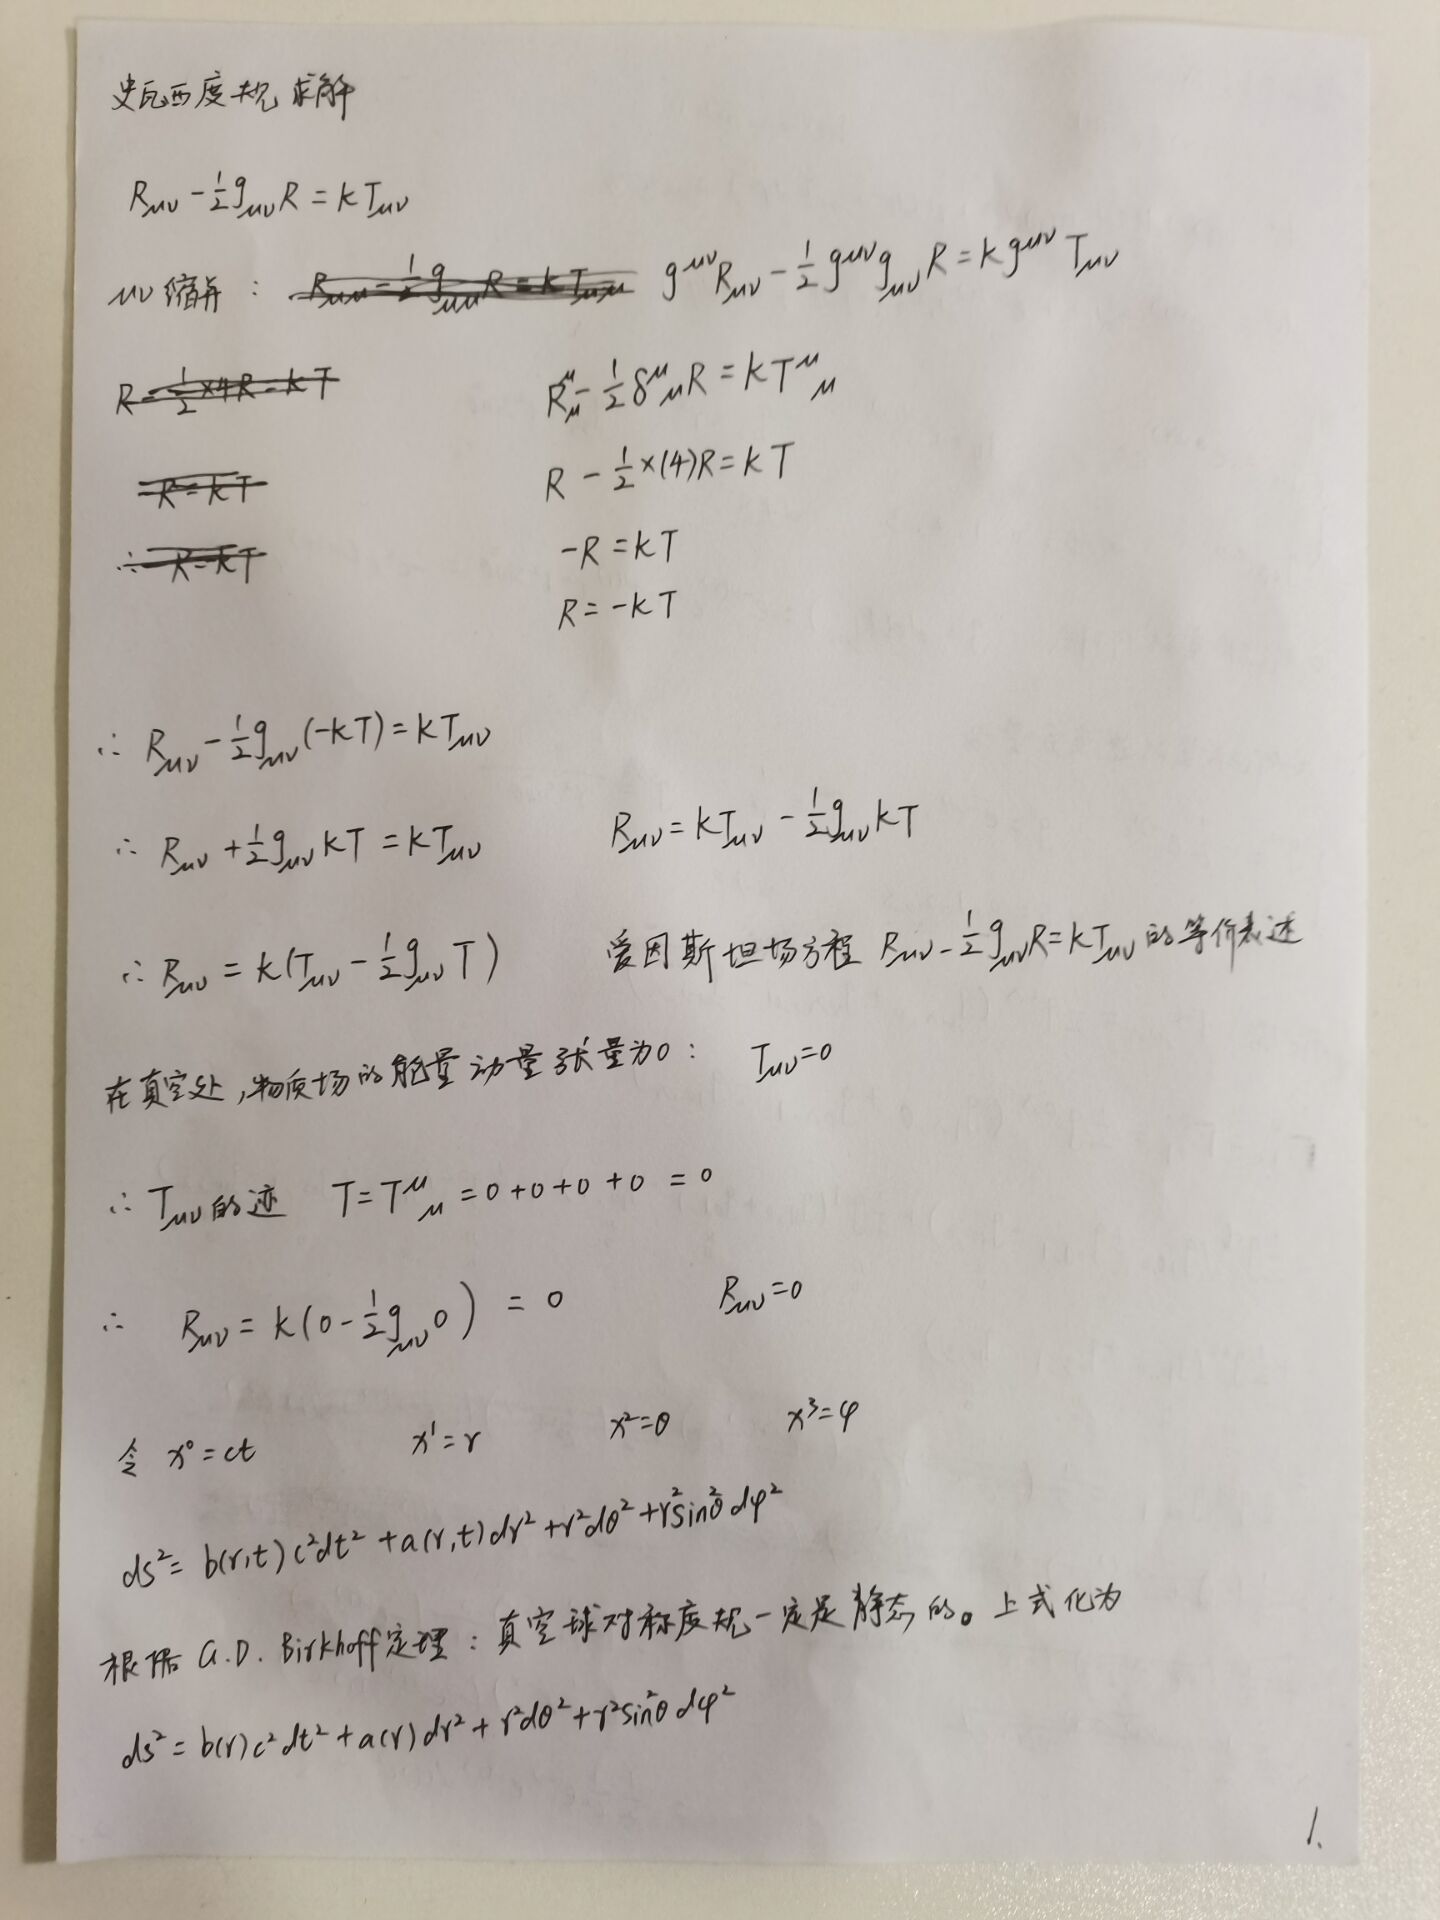 史瓦西度规求解
Rμν - ½gμνR = kTμν
μν缩并: Rμμ - ½gμμR = kTμμ g^μν Rμν - ½ g^μν gμν R = k g^μν Tμν
R - ½×4R = kT R^μ_μ - ½ δ^μ_μ R = k T^μ_μ
-R = kT R - ½×(4)R = kT
∴ R = kT -R = kT
R = -kT
∴ Rμν - ½gμν(-kT) = kTμν
∴ Rμν + ½gμν kT = kTμν Rμν = kTμν - ½gμν kT
∴ Rμν = k(Tμν - ½gμν T) 爱因斯坦场方程 Rμν - ½gμνR = kTμν 的等价表述
在真空处,物质场的能量动量张量为0: Tμν = 0
∴ Tμν的迹 T = T^μ_μ = 0+0+0+0 = 0
∴ Rμν = k(0 - ½gμν 0) = 0 Rμν = 0
令 x⁰ = ct x¹ = r x² = θ x³ = φ
ds² = b(r,t)c²dt² + a(r,t)dr² + r²dθ² + r²sin²θdφ²
根据 G.D. Birkhoff定理: 真空球对称度规一定是静态的。上式化为
ds² = b(r)c²dt² + a(r)dr² + r²dθ² + r²sin²θdφ²
1.